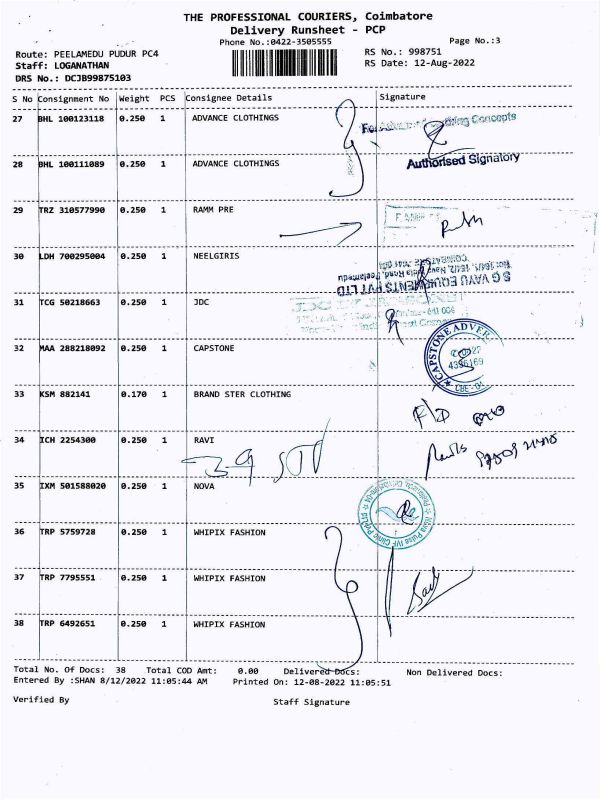 THE PROFESSIONAL COURIERS, Coimbatore
Delivery Runsheet - PCP
Phone No.:0422-3505555
Page No.:3
Route: PEELAMEDU PUDUR PC4
RS No.: 998751
Staff: LOGANATHAN
RS Date: 12-Aug-2022
DRS No.: DCJB99875103
S No Consignment No Weight PCS Consignee Details Signature
27 BHL 100123118 0.250 1 ADVANCE CLOTHINGS
Concepts
28 BHL 100111089 0.250 1 ADVANCE CLOTHINGS
Authorised Signatory
29 TRZ 310577990 0.250 1 RAMM PRE
30 LDH 700295004 0.250 1 NEELGIRIS
S G VAYU EQUIPMENTS PVT LTD
31 TCG 50218663 0.250 1 JDC
32 MAA 288218092 0.250 1 CAPSTONE
CAPSTONE ADVER
4396169
CBE - 04
33 KSM 882141 0.170 1 BRAND STER CLOTHING
34 ICH 2254300 0.250 1 RAVI
35 IXM 501588020 0.250 1 NOVA
Nova Pulse IVF Clinic
36 TRP 5759728 0.250 1 WHIPIX FASHION
37 TRP 7795551 0.250 1 WHIPIX FASHION
38 TRP 6492651 0.250 1 WHIPIX FASHION
Total No. Of Docs: 38 Total COD Amt: 0.00 Delivered Docs: Non Delivered Docs:
Entered By :SHAN 8/12/2022 11:05:44 AM Printed On: 12-08-2022 11:05:51
Verified By
Staff Signature